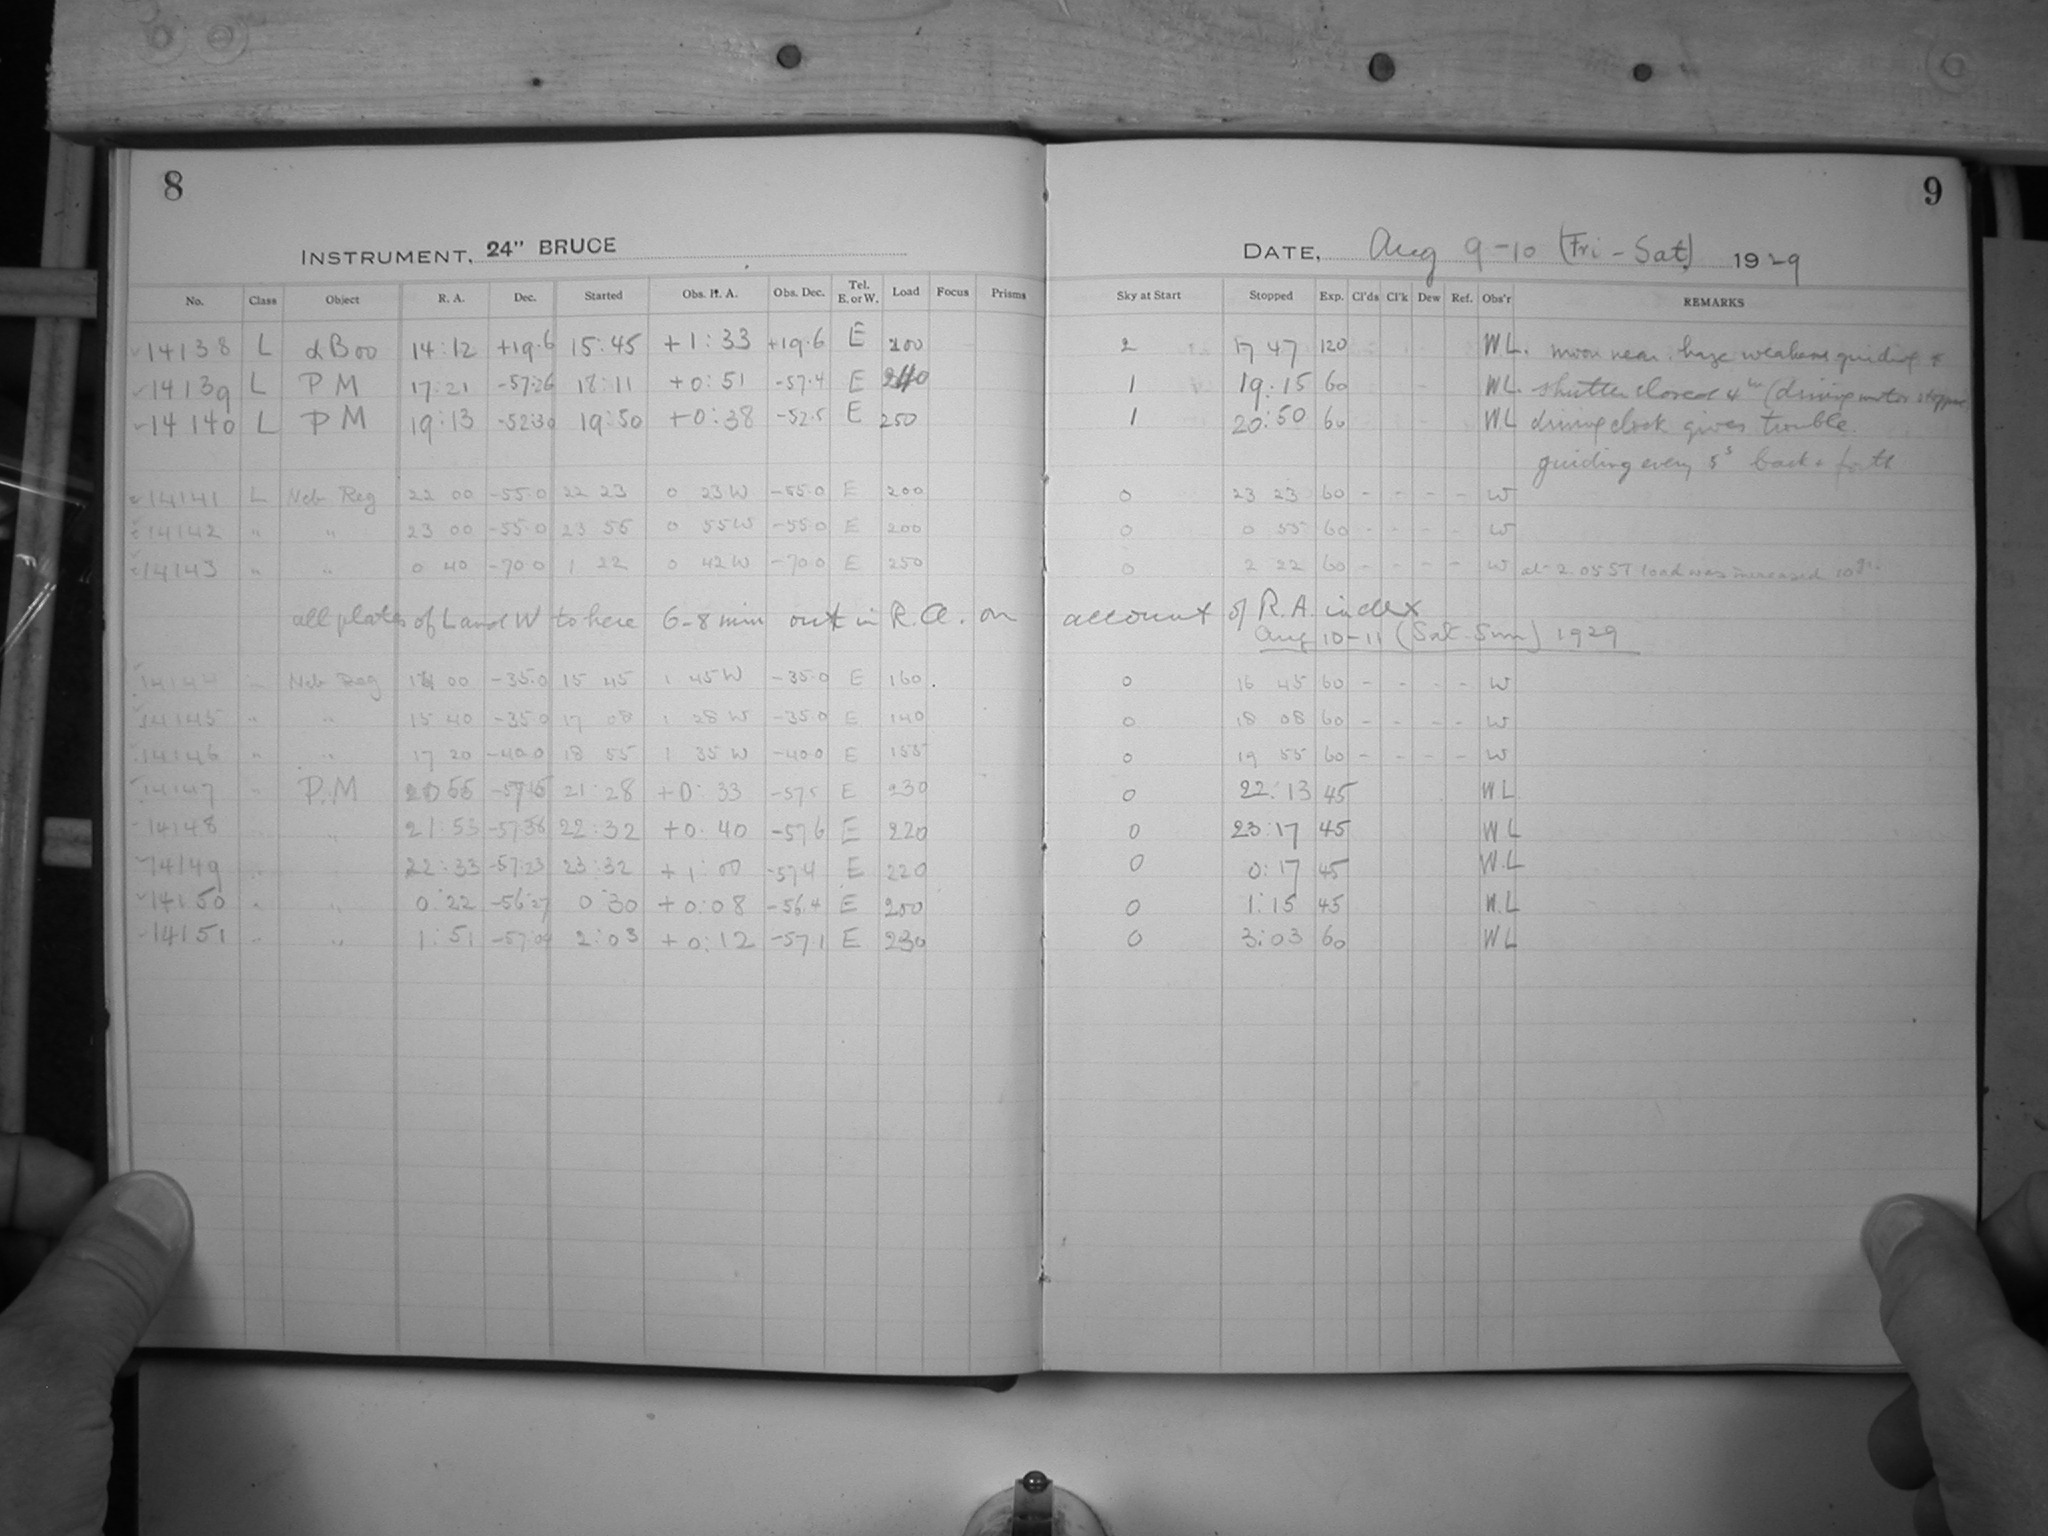 8
9
INSTRUMENT, 24" BRUCE
DATE, Aug 9-10 (Fri - Sat) 1929
No. Class Object R. A. Dec. Started Obs. H. A. Obs. Dec. Tel. E. or W. Load Focus Prisms Sky at Start Stopped Exp. Cl'ds Cl'k Dew Ref. Obs'r REMARKS
14138 L α Boo 14:12 +19.6 15:45 +1:33 +19.6 E 200 2 17 47 120 WL. moon near. haze weakens guiding +
14139 L PM 17:21 -57:26 18:11 +0:51 -57.4 E 240 1 19:15 60 WL. shutter closed 4m (driving motor stopped
14140 L PM 19:13 -52:30 19:50 +0:38 -52.5 E 250 1 20:50 60 WL driving clock gives trouble.
guiding every 5s back + forth
14141 L Neb Reg 22 00 -55.0 22 23 0 23W -55.0 E 200 0 23 23 60 - - - - W
14142 " " 23 00 -55.0 23 55 0 55W -55.0 E 200 0 0 55 60 - - - - W
14143 " " 0 40 -70.0 1 22 0 42W -70.0 E 250 0 2 22 60 - - - - W at 2.05 ST load was increased 10
all plates of L and W to here 6-8 min out in R.A. on account of R.A. index
Aug 10-11 (Sat-Sun) 1929
14144 " Neb Reg 14 00 -35.0 15 45 1 45W -35.0 E 160. 0 16 45 60 - - - - W
14145 " " 15 40 -35.0 17 08 1 28W -35.0 E 140 0 18 08 60 - - - - W
14146 " " 17 20 -40.0 18 55 1 35W -40.0 E 155 0 19 55 60 - - - - W
14147 " P.M 2055 21:28 +0:33 -57.5 E 230 0 22:13 45 WL
14148 " 21:53 -57:38 22:32 +0:40 -57.6 E 220 0 23:17 45 WL
14149 " 22:33 -57:23 23:32 +1:00 -57.4 E 220 0 0:17 45 W.L
14150 " " 0:22 -56:27 0:30 +0:08 -56.4 E 250 0 1:15 45 W.L
14151 " " 1:51 -57:04 2:03 +0:12 -57.1 E 230 0 3:03 60 WL